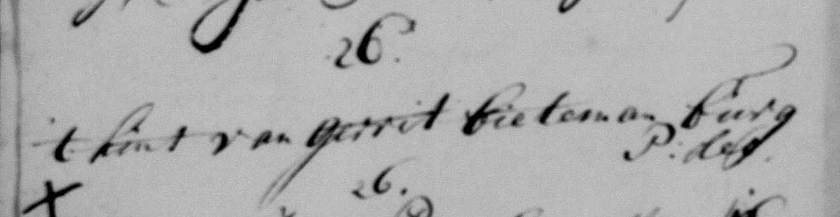 26.
't kint van gerrit bieteman burg
P: deb.
26.